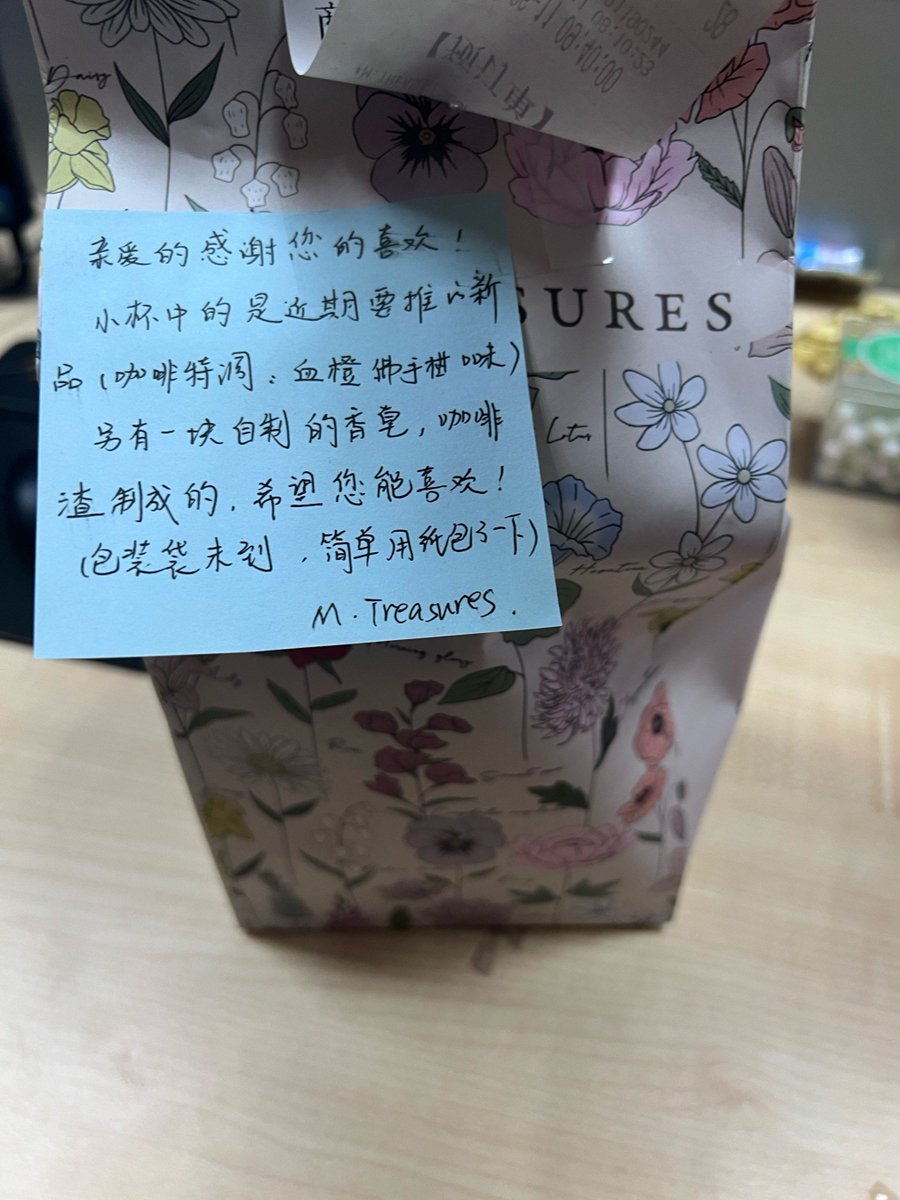 Daisy
亲爱的感谢您的喜欢！
小杯中的是近期要推的新
品（咖啡特调：血橙佛手柑味）
另有一块自制的香皂，咖啡
渣制成的，希望您能喜欢！
（包装袋未到，简单用纸包了一下）
M. Treasures.
SURES
Lotus